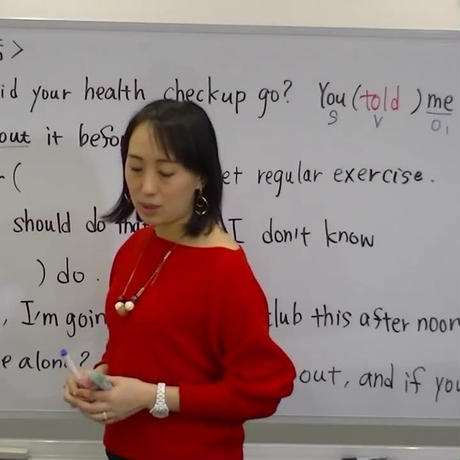 話>
id your health checkup go? You (told) me
S V O1
out it befo
( et regular exercise.
should do tha I don't know
) do.
, I'm goin lub this afternoon
e alon ?
out, and if you